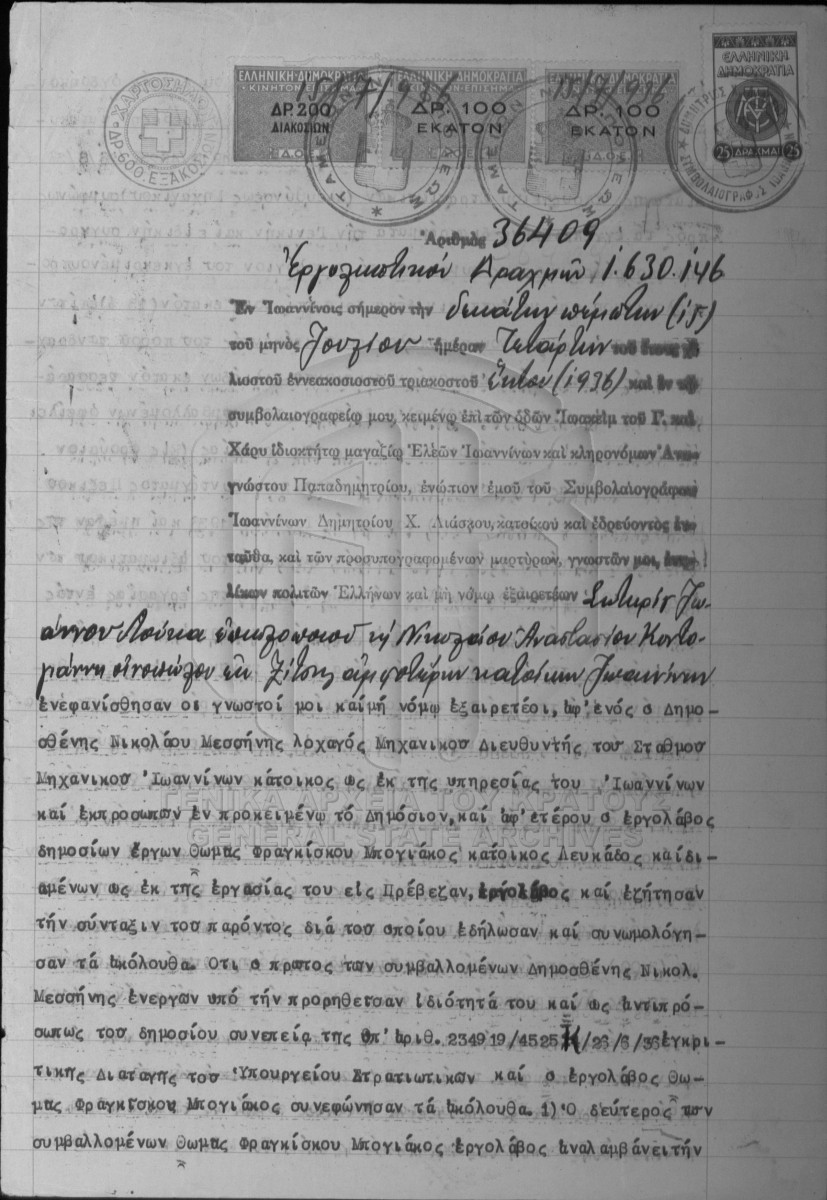 ΧΑΡΤΟΣΗΜΟΝ
ΔΡ. 600 ΕΞΑΚΟΣΙΩΝ
ΕΛΛΗΝΙΚΗ·ΔΗΜΟΚΡΑΤΙΑ
ΔΡ. 200
ΔΙΑΚΟΣΙΩΝ
ΕΛΛΗΝΙΚΗ·ΔΗΜΟΚΡΑΤΙΑ
ΚΙΝΗΤΟΝ ΕΠΙΣΗΜΑ
ΔΡ. 100
ΕΚΑΤΟΝ
ΕΛΛΗΝΙΚΗ·ΔΗΜΟΚΡΑΤΙΑ
ΚΙΝΗΤΟΝ ΕΠΙΣΗΜΑ
ΔΡ. 100
ΕΚΑΤΟΝ
15/7/936
15/7/936
ΕΛΛΗΝΙΚΗ
ΔΗΜΟΚΡΑΤΙΑ
25 ΔΡΑΧΜΑΙ 25
Ἀριθμὸς 36409
Ἐργολαπτικόν Δραχμῶν 1.630.146
Ἐν Ἰωαννίνοις σήμερον τὴν δεκάτην πέμπτην (15)
τοῦ μηνὸς Ἰουλίου ἡμέραν Τετάρτην τοῦ ἔτους χι
λιοστοῦ ἐννεακοσιοστοῦ τριακοστοῦ ἕκτου (1936) καὶ ἐν τῷ
συμβολαιογραφείῳ μου, κειμένῳ ἐπὶ τῶν ὁδῶν Ἰωακεὶμ τοῦ Γ. καὶ
Χάρυ ἰδιοκτήτῳ μαγαζίῳ Ἐλεῶν Ἰωαννίνων καὶ κληρονόμων Ἀνα
γνώστου Παπαδημητρίου, ἐνώπιον ἐμοῦ τοῦ Συμβολαιογράφου
Ἰωαννίνων Δημητρίου Χ. Λιάσκου, κατοίκου καὶ ἑδρεύοντος ἐν
ταῦθα, καὶ τῶν προσυπογραφομένων μαρτύρων, γνωστῶν μοι, ἐνη
λίκων πολιτῶν Ἑλλήνων καὶ μὴ νόμῳ ἐξαιρετέων Σωτηρίου Ἰω-
άννου Λούκα καὶ Νικολάου Αναστασίου Κοντο-
γιάννη οἰνοπώλου ἐκ Ζίτσης ἀμφοτέρων κατοίκων Ἰωαννίνων
ενεφανίσθησαν οι γνωστοί μοι καί μή νόμῳ εξαιρετέοι, ἀφ' ενός ο Δημο-
σθένης Νικολάου Μεσσήνης λοχαγός Μηχανικού Διευθυντής του Σταθμού
Μηχανικού Ἰωαννίνων κάτοικος ως εκ της υπηρεσίας του Ἰωαννίνων
καί εκπροσωπών εν προκειμένῳ τό Δημόσιον, καί ἀφ' ετέρου ο ἐργολάβος
δημοσίων έργων Θωμάς Φραγκίσκου Μπογιάκος κάτοικος Λευκάδος καί δι-
αμένων ως εκ της εργασίας του εις Πρέβεζαν, εργολάβος καί εζήτησαν
τήν σύνταξιν του παρόντος διά του οποίου εδήλωσαν καί συνωμολόγη-
σαν τά ἀκόλουθα. Οτι ο πρώτος των συμβαλλομένων Δημοσθένης Νικολ.
Μεσσήνης ενεργών υπό τήν προρηθείσαν ιδιότητά του καί ως ἀντιπρό-
σωπος του δημοσίου συνεπείᾳ της ὑπ' ἀριθ. 234919/4525 /26/6/36 ἐγκρι-
τικής Διαταγής του Ὑπουργείου Στρατιωτικών καί ο ἐργολάβος Θω-
μάς Φραγκίσκου Μπογιάκος συνεφώνησαν τά ἀκόλουθα. 1) Ὁ δεύτερος των
συμβαλλομένων Θωμάς Φραγκίσκου Μπογιάκος ἐργολάβος ἀναλαμβάνει τήν
ΓΕΝΙΚΑ ΑΡΧΕΙΑ ΤΟΥ ΚΡΑΤΟΥΣ
GENERAL STATE ARCHIVES